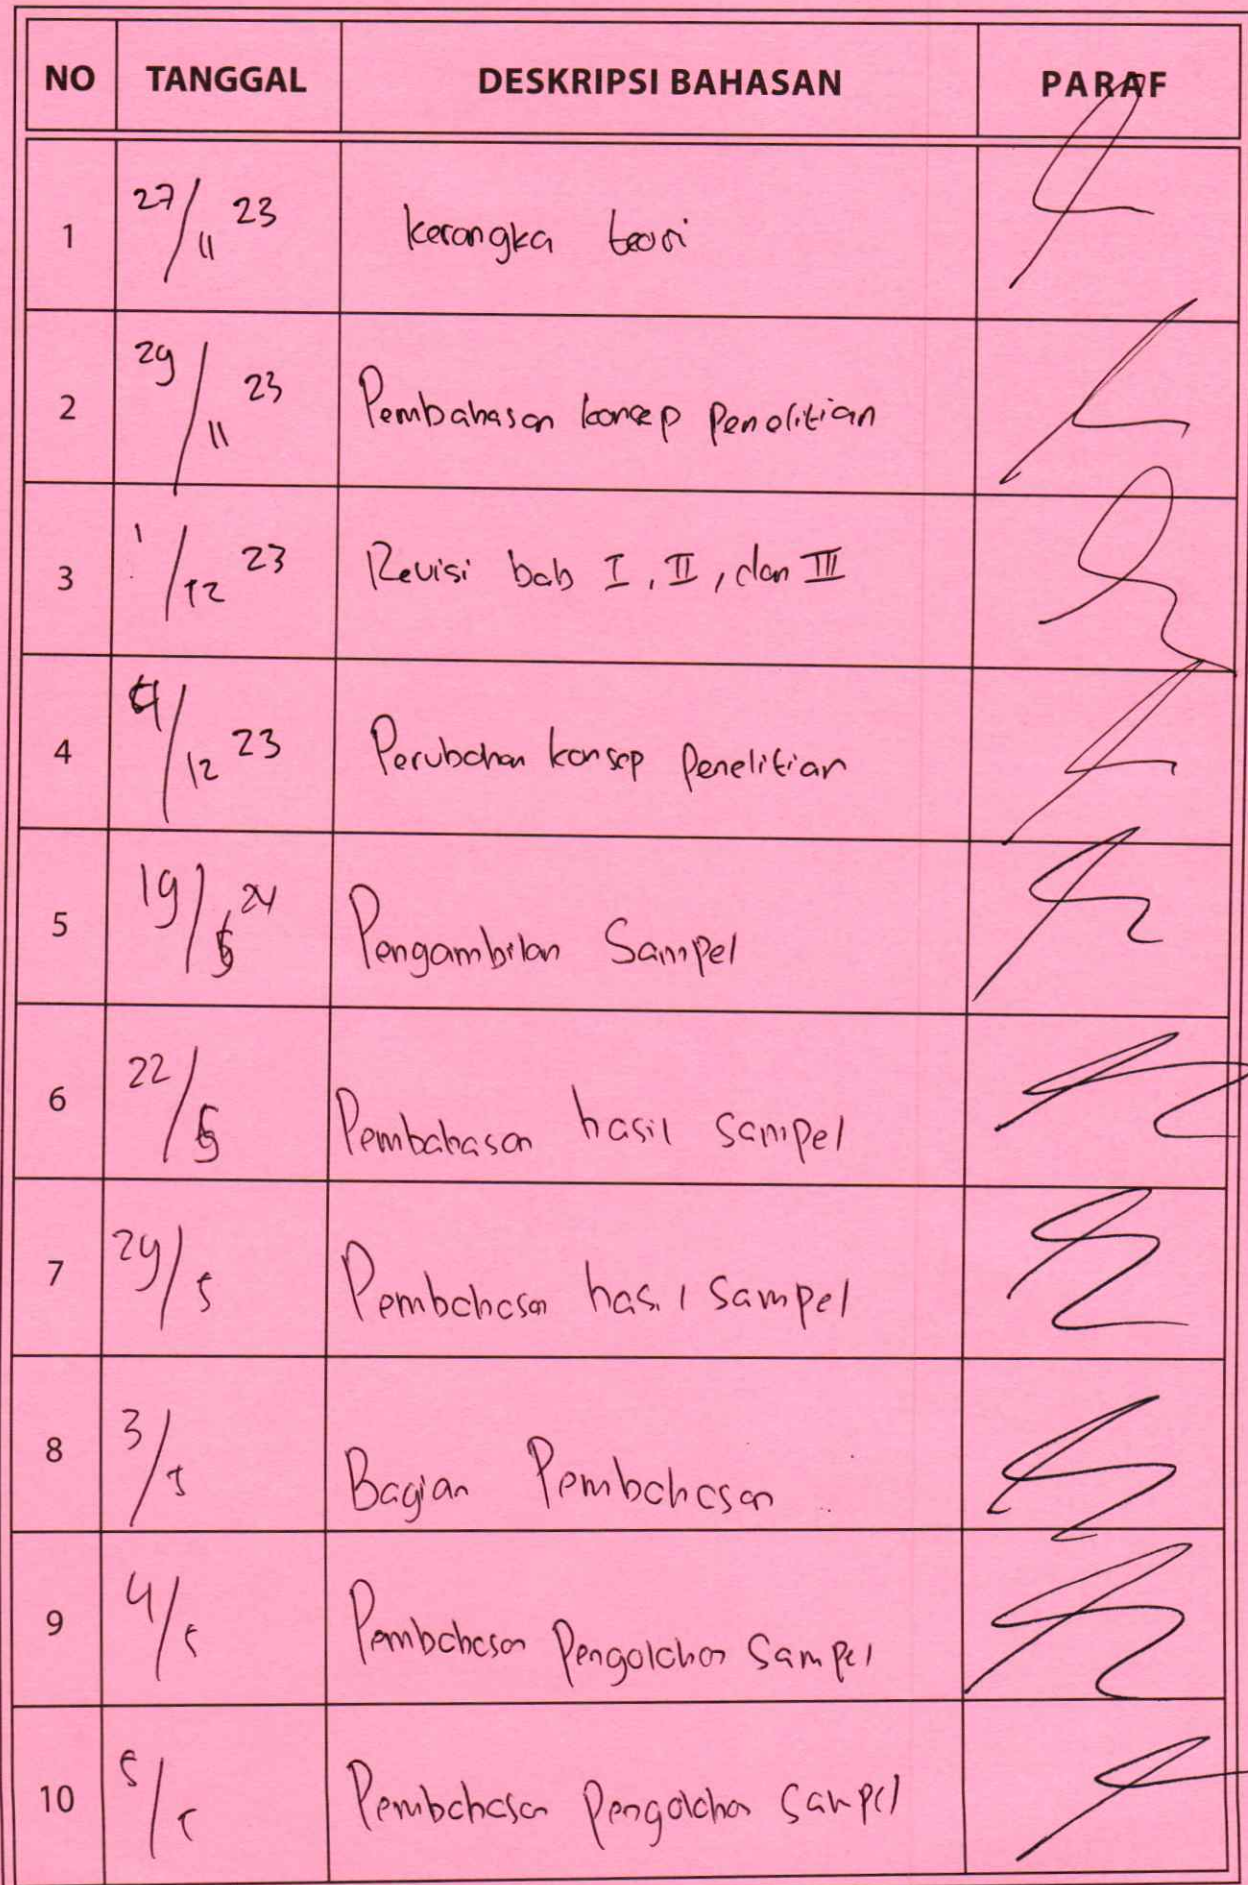 NO TANGGAL DESKRIPSI BAHASAN PARAF
1 27/11 23 kerangka teori
2 29/11 23 Pembahasan konsep Penelitian
3 1/12 23 Revisi bab I, II, dan III
4 4/12 23 Perubahan konsep Penelitian
5 19/5 24 Pengambilan Sampel
6 22/5 Pembahasan hasil sampel
7 29/5 Pembahasan hasil sampel
8 3/5 Bagian Pembahasan
9 4/5 Pembahasan Pengolahan Sampel
10 5/5 Pembahasan Pengolahan Sampel